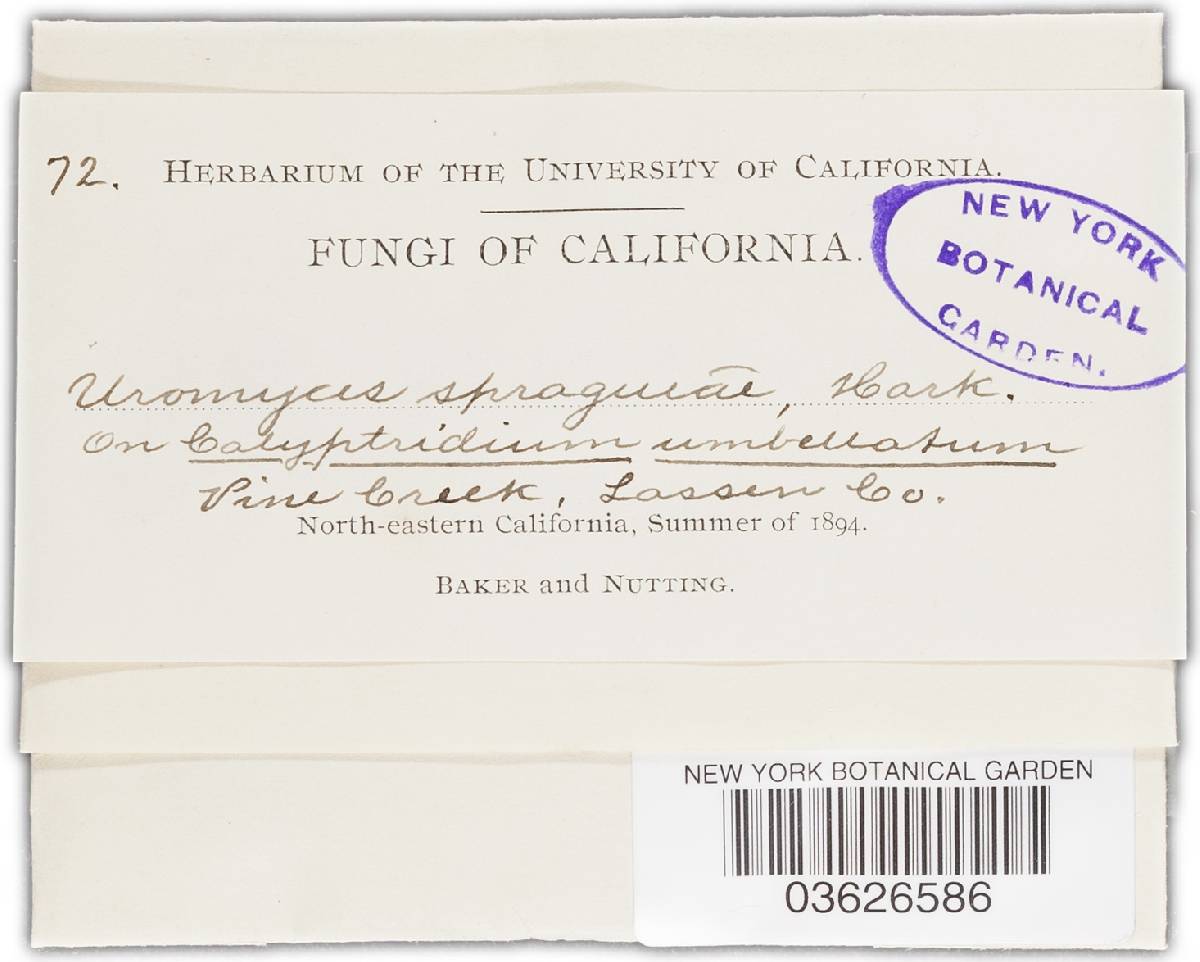 72. HERBARIUM OF THE UNIVERSITY OF CALIFORNIA.
FUNGI OF CALIFORNIA.
NEW YORK
BOTANICAL
GARDEN.
Uromyces spragueae, Hark.
On Calyptridium umbellatum
Pine Creek, Lassen Co.
North-eastern California, Summer of 1894.
BAKER and NUTTING.
NEW YORK BOTANICAL GARDEN
03626586